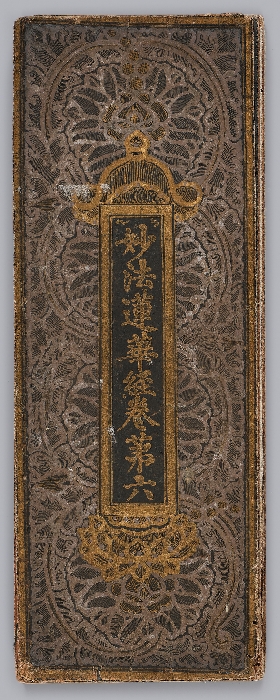 妙法蓮華經卷第六